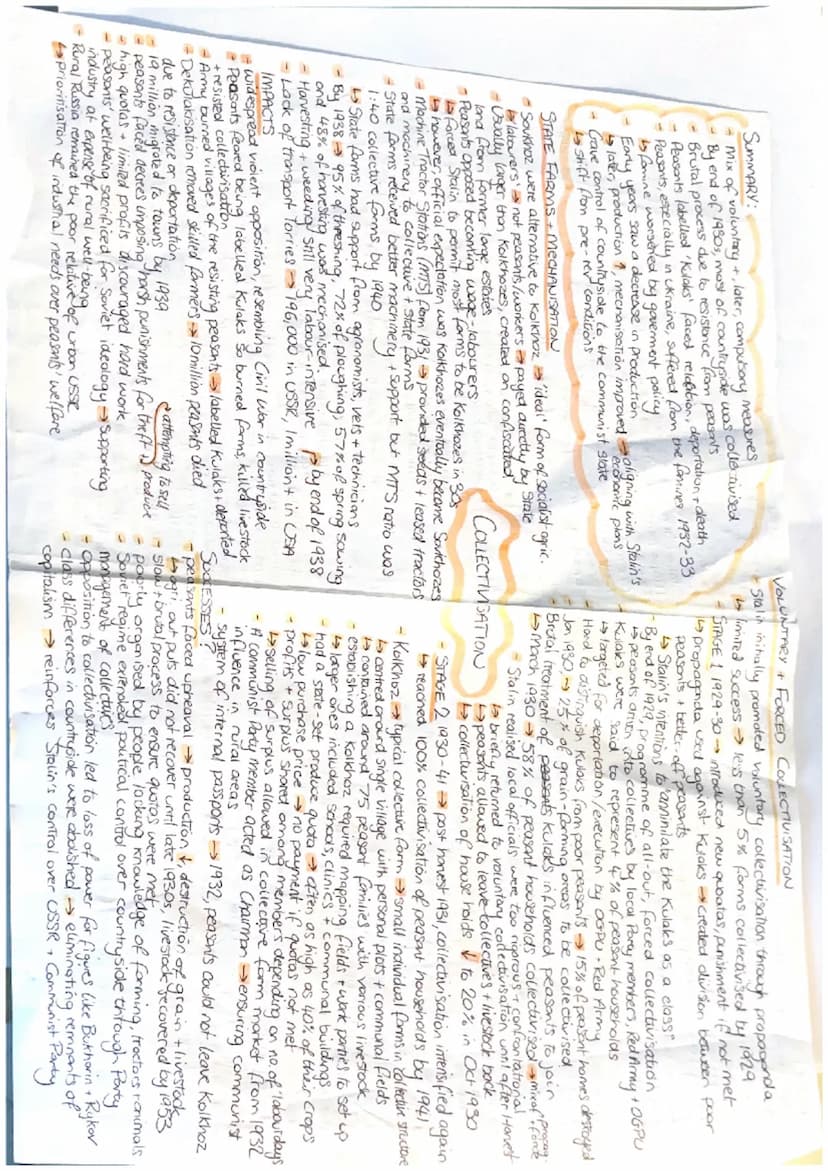 SUMMARY:
- Mix of voluntary +, later, compulsory measures
- By end of 1930s, most of countryside was collectivised
- Brutal process due to resistance from peasants
- Peasants labelled 'Kulaks' faced redaption, deportation + death
- Peasants, especially in Ukraine, suffered from the famines 1932-33
↳ famine worsened by government policy
- Early years saw a decrease in production
↳ later, production ↑, mechanisation improved → aligning with Stalin's economic plans
- Gave control of countryside to the communist state
↳ shift from pre-rev conditions
STATE FARMS + MECHANISATION
- Sovkhoz were alternative to Kolkhoz → 'ideal' form of socialist agric.
↳ labourers → not peasants/workers → payed directly by State
- Usually larger than Kolkhozes, created on confiscated
land from former large estates
- Peasants opposed becoming wage-labourers
↳ forced Stalin to permit most farms to be Kolkhozes in 30s
↳ however, official expectation was Kolkhozes eventually become Sovkhozes
- Machine Tractor Stations (MTS) from 1931 → provided seeds + leased tractors
and machinery to collective + state farms
- State farms received better machinery + support but MTS ratio was
1:40 collective farms by 1940
↳ State farms had support from agronomists, vets + technicians
- By 1938 → 95% of threshing, 72% of ploughing, 57% of spring sowing
and 48% of harvesting was mechanised
- Harvesting + weeding still very labour-intensive
- Lack of transport lorries → 196,000 in USSR, 1 million+ in USA
↱ by end of 1938
IMPACTS
- widespread violent opposition, resembling Civil War in countryside
- Peasants feared being labelled Kulaks so burned farms, killed livestock
+ resisted collectivisation
- Army burned villages of the resisting peasants → labelled Kulaks + deported
- Dekulakisation removed skilled farmers → 10 million peasants died
due to resistance or deportation
- 19 million migrated to towns by 1939
- peasants faced decrees imposing harsh punishments for theft →
attempting to sell produce
- high quotas + limited profits discouraged hard work
- peasants wellbeing sacrificed for Soviet ideology → supporting
industry at expense of rural well-being
- Rural Russia remained the poor relative of urban USSR
↳ prioritisation of industrial needs over peasants' welfare
COLLECTIVISATION
VOLUNTARY + FORCED COLLECTIVISATION
- Stalin initially promoted voluntary collectivisation through propaganda
↳ limited success → less than 5% farms collectivised by 1929
- STAGE 1 1929-30 → introduced new quoatas, punishment if not met
↳ propaganda used against Kulaks → created division between poor
peasants + better-off peasants
↳ Stalin's intentions to "annihilate the Kulaks as a class"
- By end of 1929, programme of all-out, forced collectivisation
↳ peasants driven into collectives by local Party members, Red Army + OGPU
- Kulaks were said to represent 4% of peasant households
↳ targeted for deportation/execution by OGPU + Red Army
- Hard to distinguish Kulaks from poor peasants → 15% of peasant homes destroyed
- Jan 1930 → 25% of grain-farming areas to be collectivised
- Brutal treatment of Kulaks influenced peasants to join
↳ March 1930 → 58% of peasant households collectivised → mix of propag. + force
- Stalin realised local officials were too rigorous + confrontational
↳ briefly returned to voluntary collectivisation until after Harvest
↳ peasants allowed to leave collectives + livestock back
↳ collectivisation of house holds ↓ to 20% in Oct 1930
- STAGE 2 1930-41 → post harvest 1931, collectivisation intensified again
↳ reached 100% collectivisation of peasant households by 1941
- Kolkhoz → typical collective farm → small individual farms in collective structure
↳ centred around single village with personal plots + communal fields
↳ contained around 75 peasant families with various livestock
- establishing a Kolkhoz required mapping fields + work parties to set up
↳ larger ones included schools, clinics + communal buildings
- had a state-set produce quota → often as high as 40% of their crops
↳ low purchase price → no payment if quotas not met
- profits + surplus shared among members depending on no of 'labour days'
↳ selling of surplus allowed in collective farm market from 1932
- A communist Party member acted as Chairman → ensuring communist
influence in rural areas
- system of internal passports → 1932, peasants could not leave Kolkhoz
SUCCESSES?
- peasants faced upheaval → production ↓, destruction of grain + livestock
↳ agri. out puts did not recover until late 1930s, livestock recovered by 1953
- slow + brutal process to ensure quotas were met
- poorly organised by people lacking knowledge of farming, tractors + animals
- Soviet regime extended political control over countryside through Party
management of collectives
- Opposition to collectivisation led to loss of power for figures like Bukharin + Rykov
- Class differences in countryside were abolished → eliminating remnants of
capitalism → reinforces Stalin's control over USSR + Communist Party